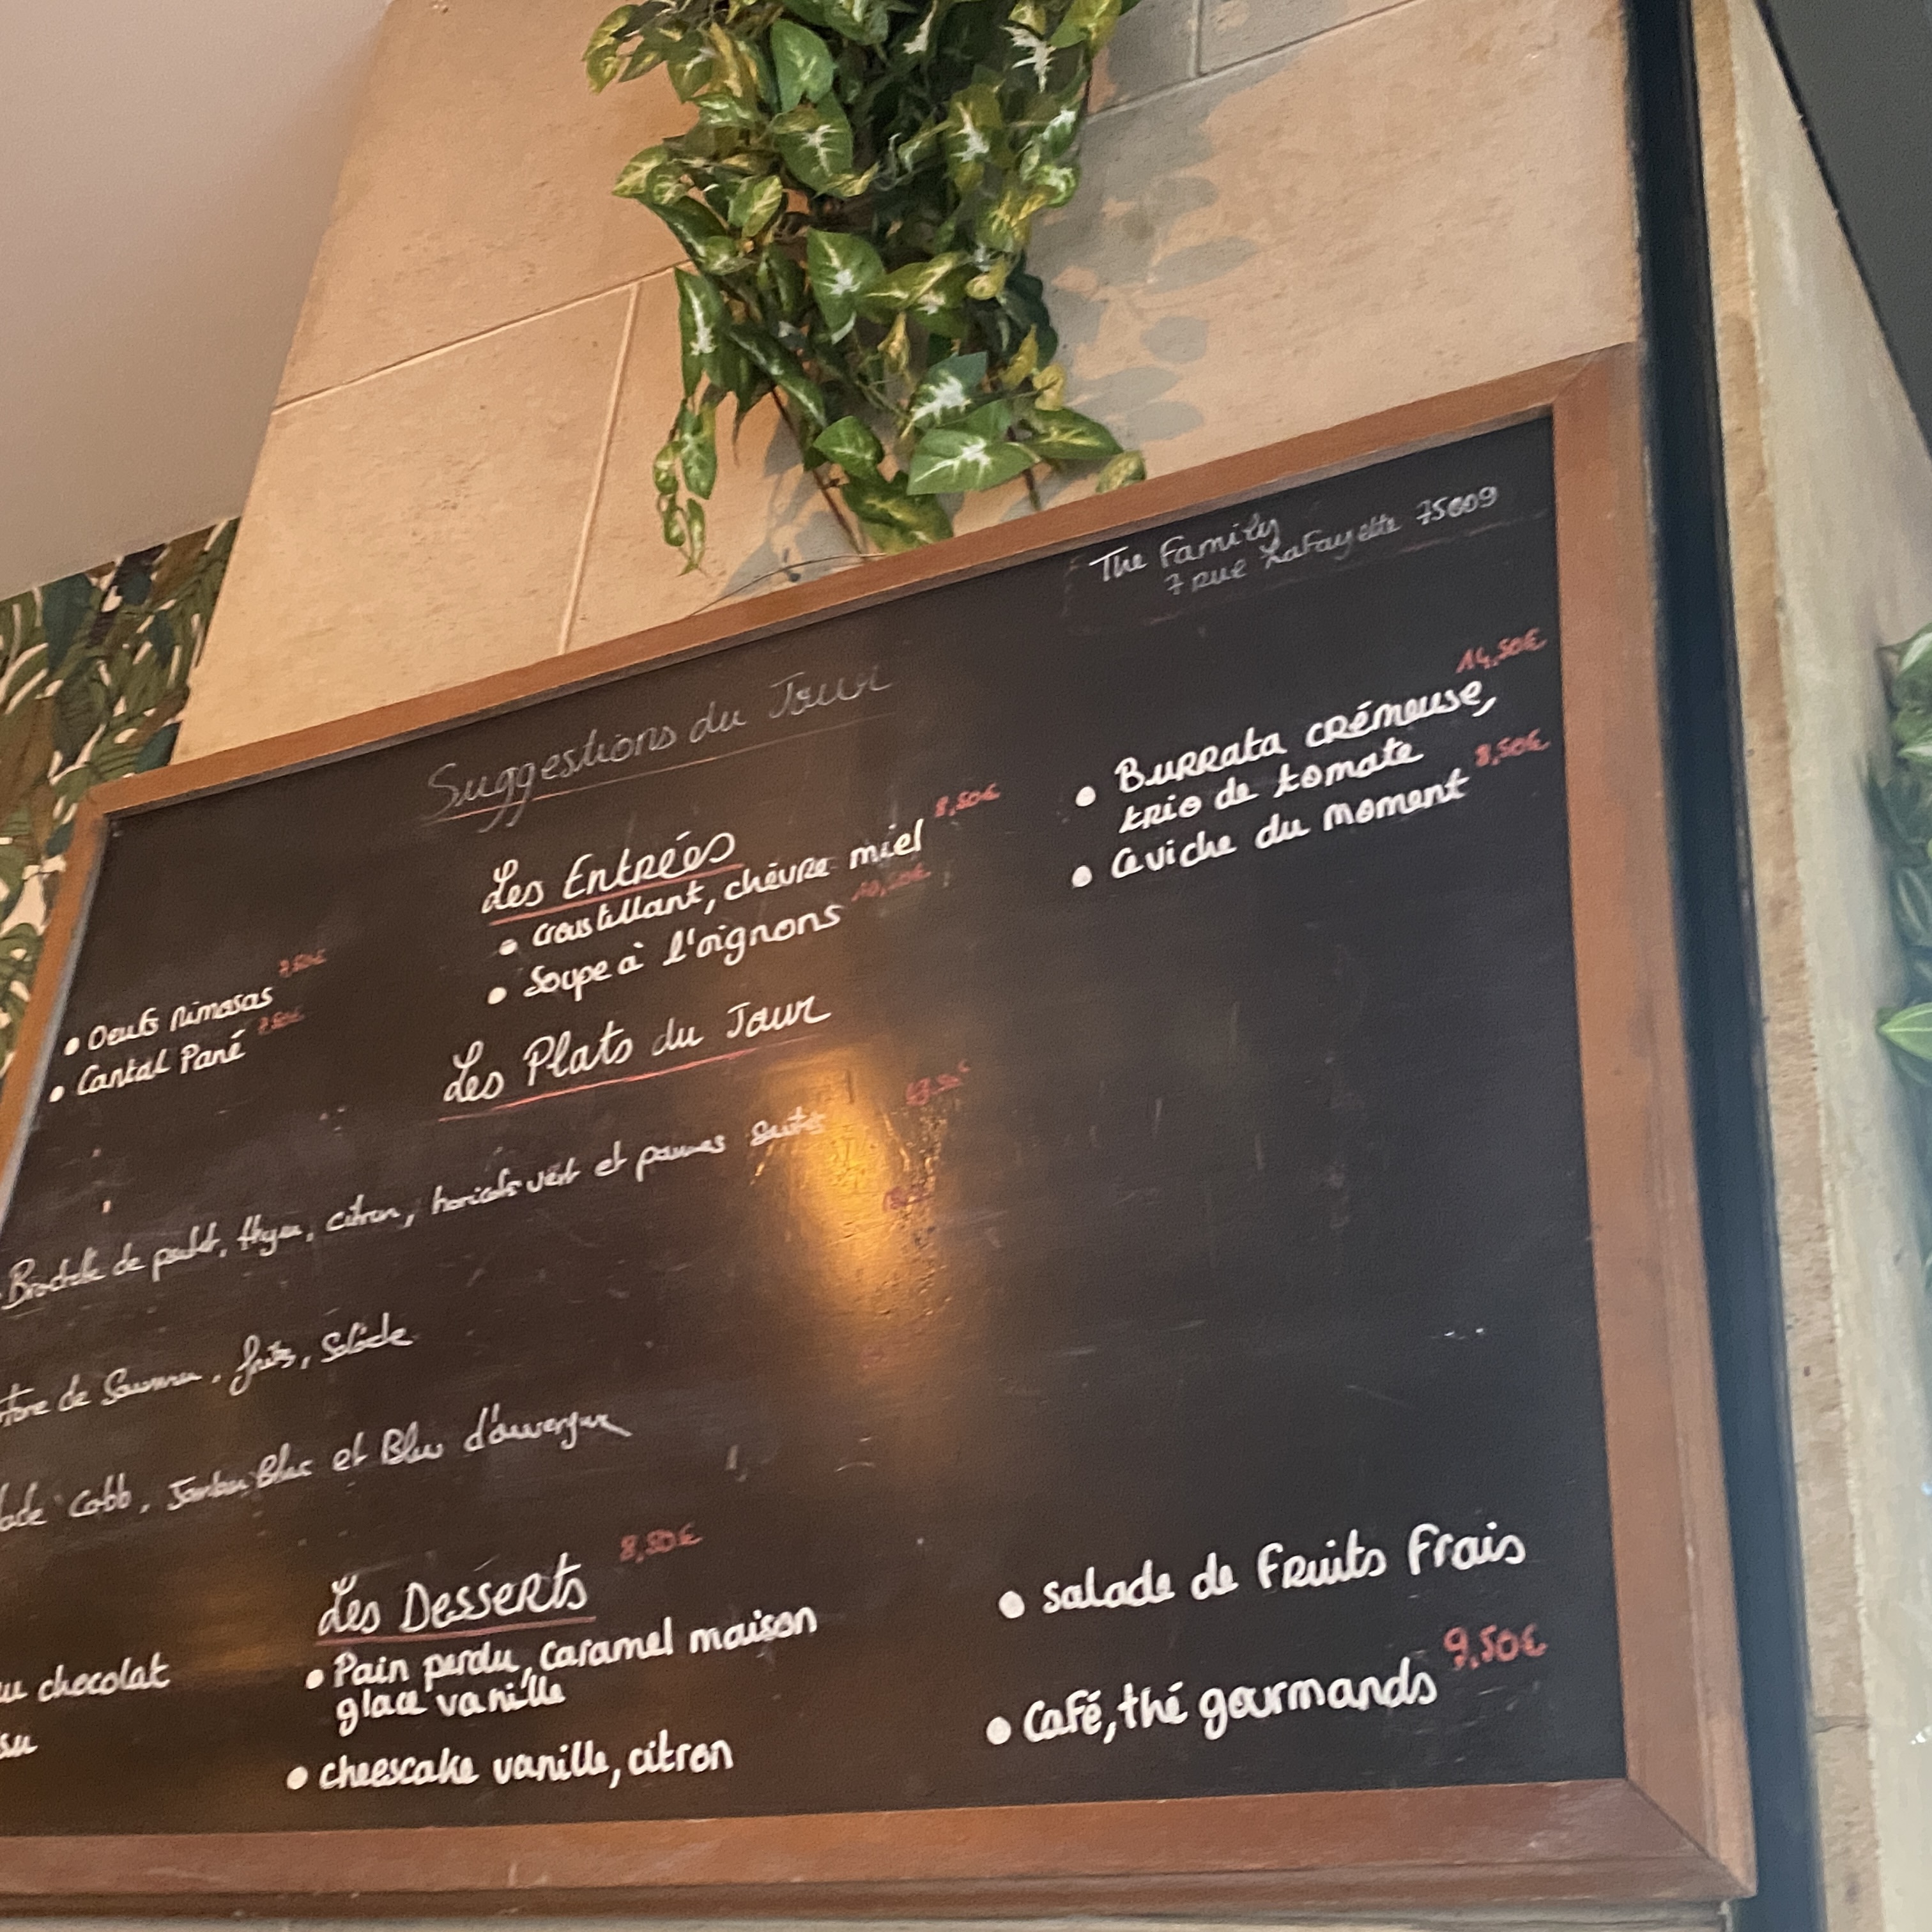 The Family
7 rue LaFayette 75009
Suggestions du Jour
Les Entrées
• Oeufs mimosas 7,50€
• Cantal Pané 7,50€
• Croustillant, chèvre miel 8,50€
• Soupe à l'oignons 10,50€
• Burrata crémeuse, 14,50€
trio de tomate
• Ceviche du moment 8,50€
Les Plats du Jour
Brochette de poulet, thym, citron, haricots vert et pommes sautes
de Saumon, frites, Salade
Cobb, Jambon Blanc et Bleu d'auvergne
Les Desserts 8,50€
chocolat
• Pain perdu, caramel maison
glace vanille
• cheescake vanille, citron
• salade de fruits frais
• Café, thé gourmands 9,50€